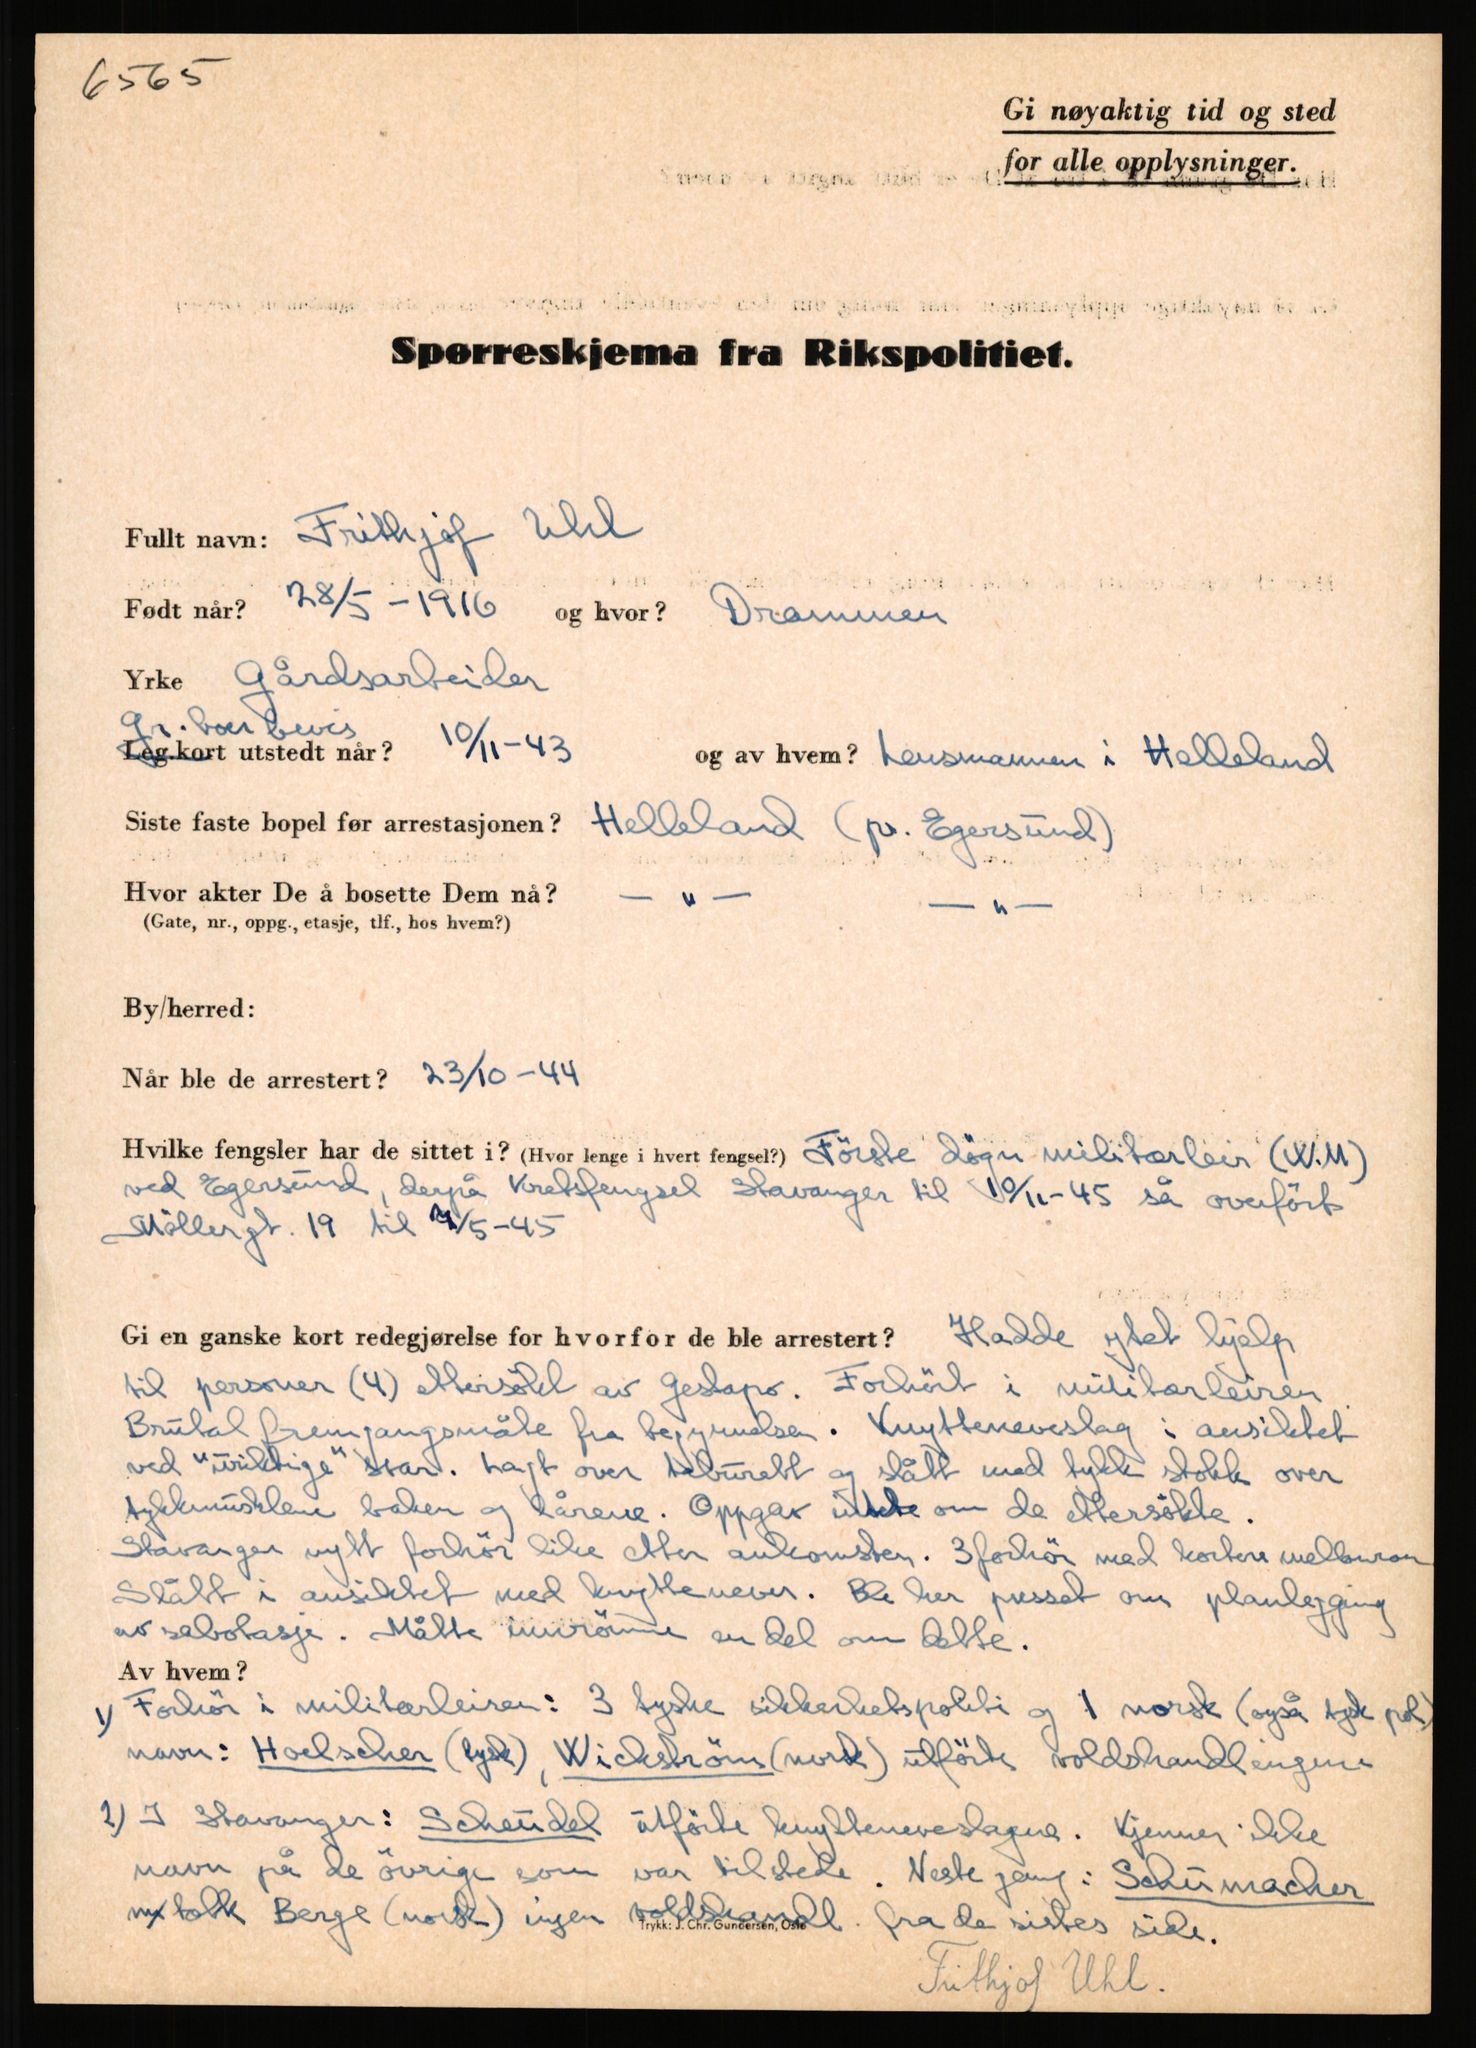 6565
Gi nøyaktig tid og sted
for alle opplysninger.
Spørreskjema fra Rikspolitiet.
Fullt navn: Frithjof Uhl
Født når? 28/5 - 1916 og hvor? Drammen
Yrke Gårdsarbeider
Gr. boer bevis
Leg.kort utstedt når? 10/11-43 og av hvem? Lensmannen i Helleland
Siste faste bopel før arrestasjonen? Helleland (pr. Egersund)
Hvor akter De å bosette Dem nå? — " — — " —
(Gate, nr., oppg., etasje, tlf., hos hvem?)
By/herred:
Når ble de arrestert? 23/10-44
Hvilke fengsler har de sittet i? (Hvor lenge i hvert fengsel?) Förste dögn militærleir (W.M)
ved Egersund, derpå Kretsfengsel Stavanger til 10/11-45 så overfört
Möllergt. 19 til 7/5-45
Gi en ganske kort redegjørelse for hvorfor de ble arrestert? Hadde ytet hjelp
til personer (4) ettersökt av Gestapo. Forhört i militærleiren
Brutal fremgangsmåte fra begynnelsen. Knytteneveslag i ansiktet
ved "uriktige" svar. Lagt over taburett og slått med tykk stokk over
tykkmusklene baken og lårene. Oppgav intet om de ettersökte.
Stavanger nytt forhör like etter ankomsten. 3 forhör med kortere mellomrom
Slått i ansiktet med knyttnever. Ble her presset om planlegging
av sabotasje. Måtte innrömme en del om dette.
Av hvem?
1) Forhör i militærleiren: 3 tyske sikkerhetspoliti og 1 norsk (også tysk pol)
navn: Hoelscher (tysk), Wickström (norsk) utförte voldshandlingene
2) I Stavanger: Scheudel utförte knytteneveslagene. Kjenner ikke
navn på de övrige som var tilstede. Neste gang: Schumacher
tolk Berge (norsk) ingen voldshandl. fra de sistes side.
Trykk: J. Chr. Gundersen, Oslo
Frithjof Uhl.